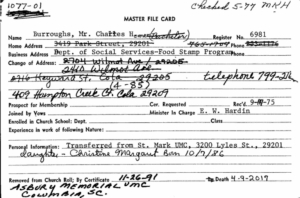 1077-01 Checked 5-77 MKH
MASTER FILE CARD
Name Burroughs, Mr. Charles H (Gretchen) Register No. 6981
Home Address 3419 Park Street, 29201 765-1709 Phone
Business Address Dept. of Social Services-Food Stamp Program Phone
Change of Address 2701 Wilmot Ave / 29205
2716 Wilmot Ave
2716 Heyward St. Cola 29205 telephone 799-
(4-85)
409 Hampton Creek Ct. Cola 29209
Prospect for Membership Cor. Requested Rec'd 9-III-75
Joined by Vows Minister in Charge E. W. Hardin
Enrolled in Church School: Dept. Class
Experience in work of following Nature:
Personal Information: Transferred from St. Mark UMC, 3200 Lyles St., 29201
daughter - Christine Margaret Born 10/7/86
Removed from Church Roll; By Certificate 11-26-91 By Death 4-9-2017
ASBURY MEMORIAL UMC
COLUMBIA, SC.